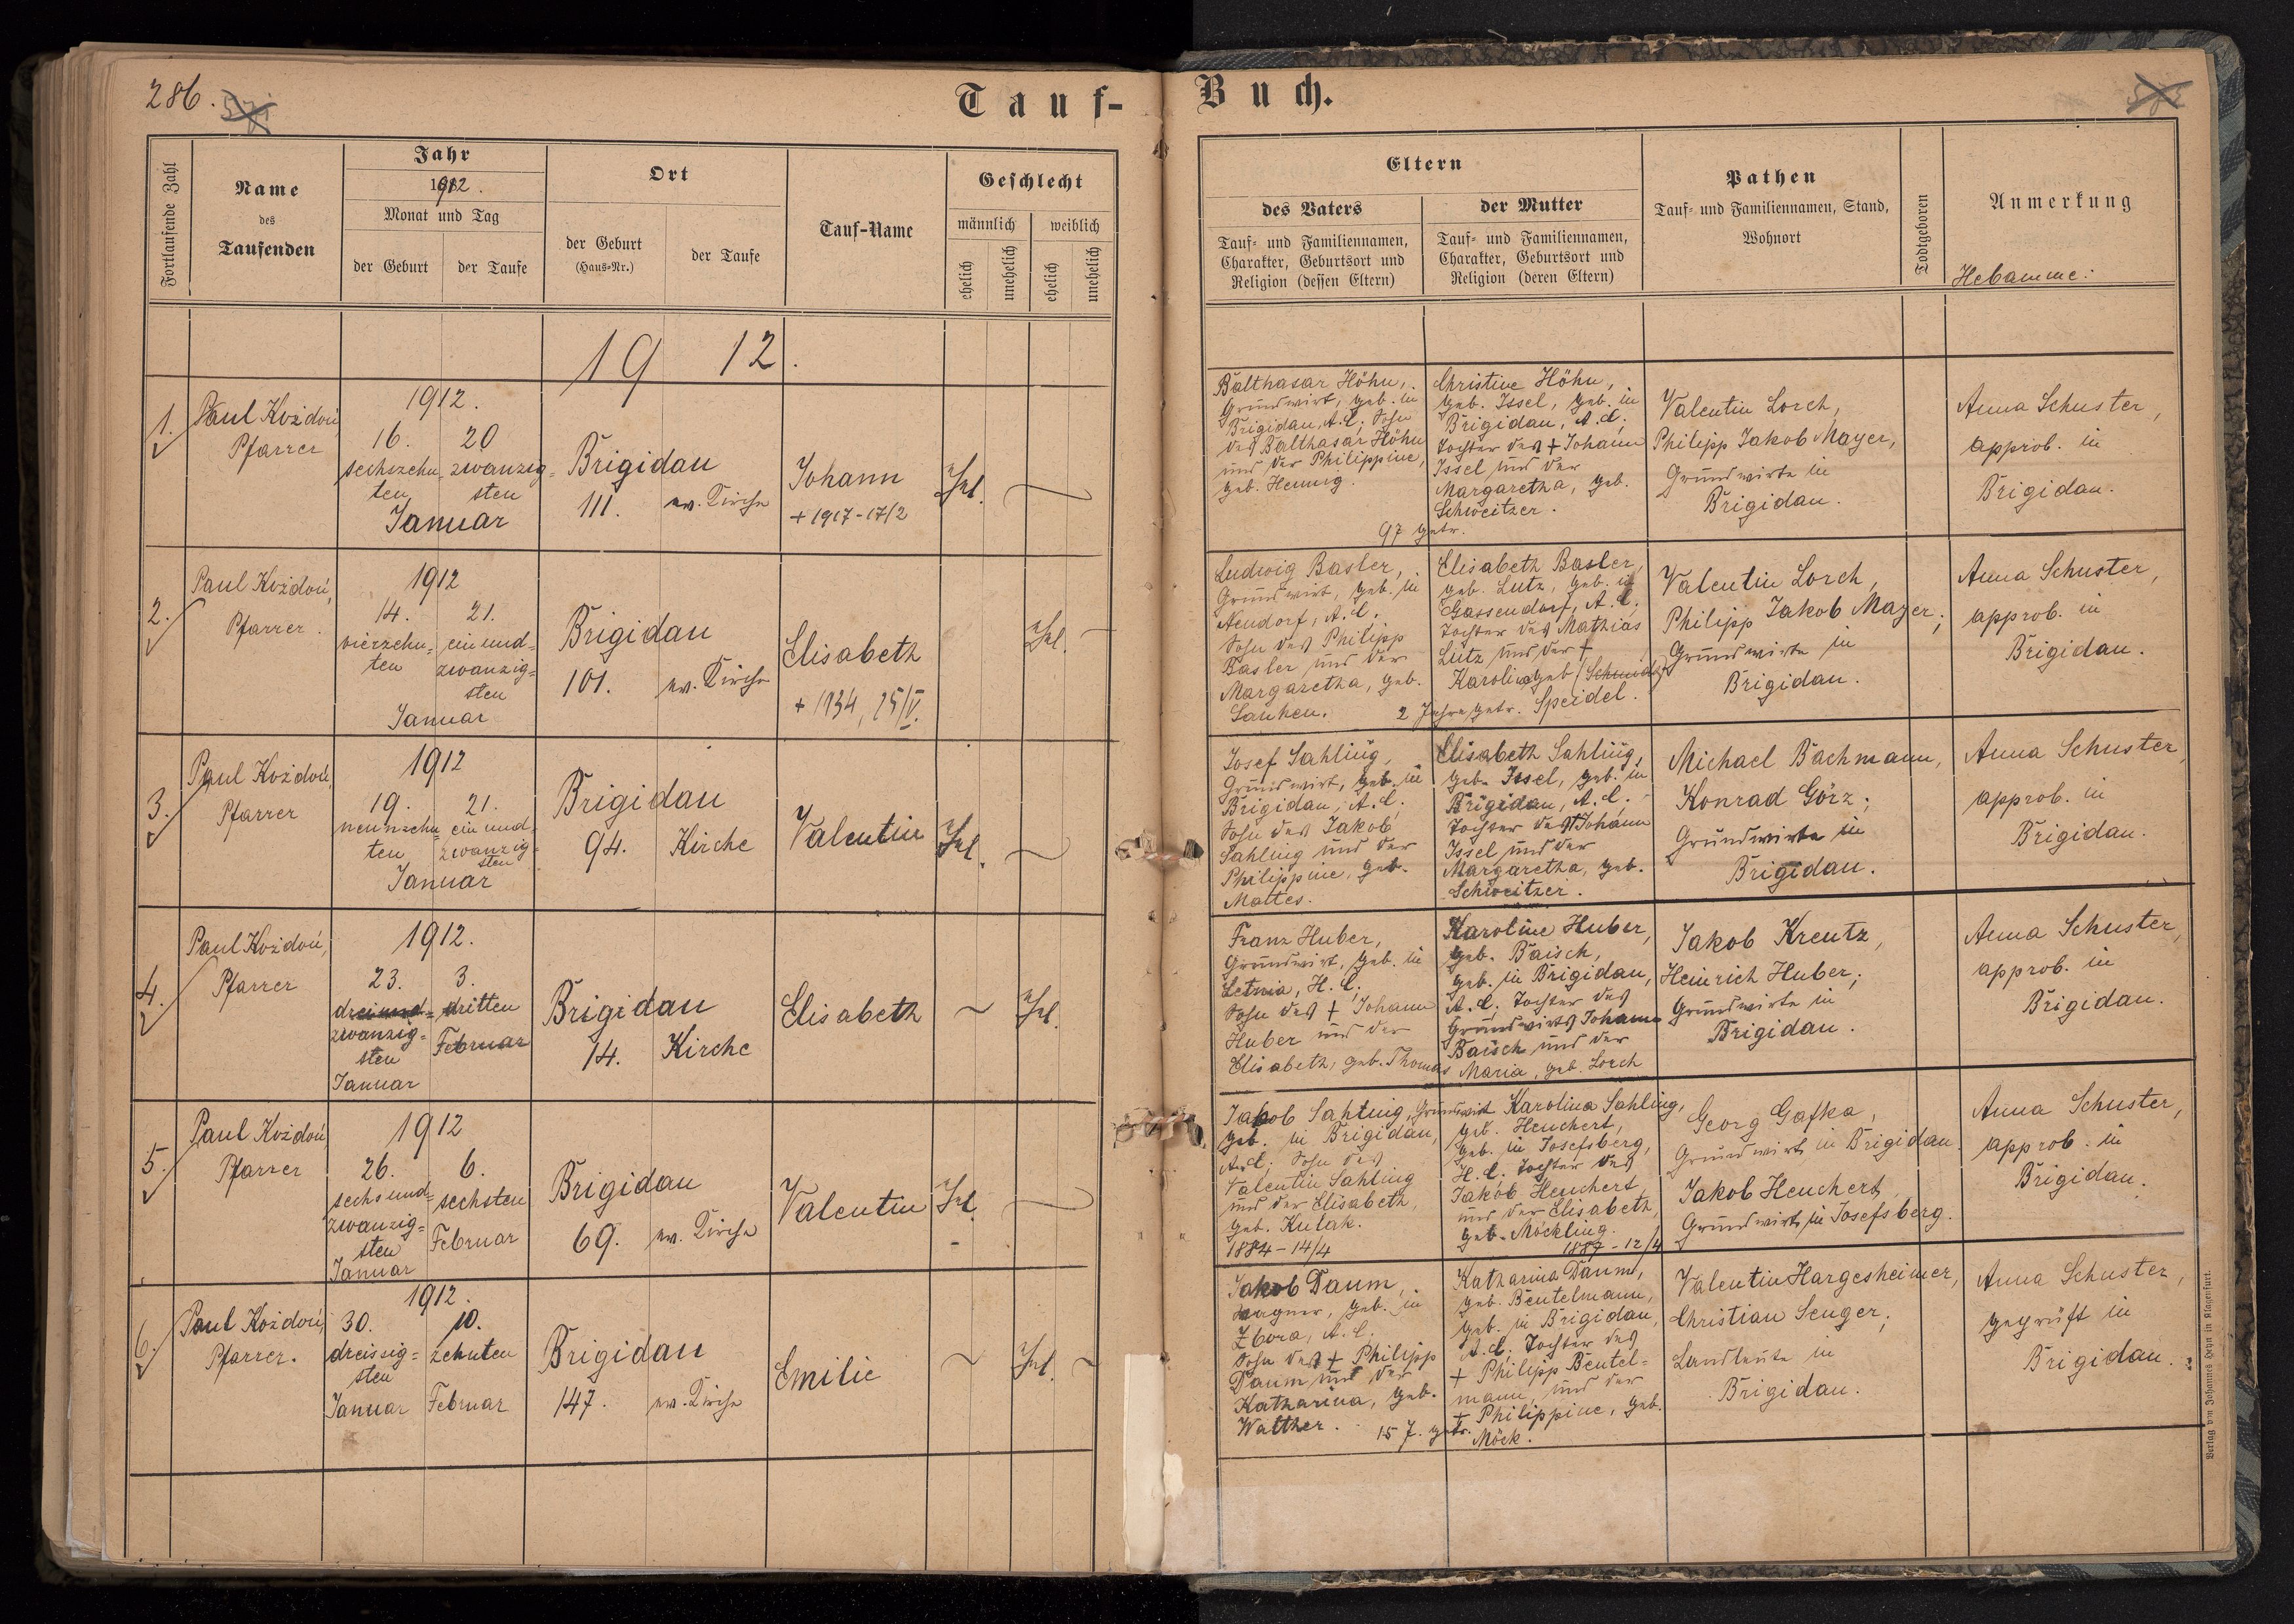 286.
Tauf-Buch.
Fortlaufende Zahl
Name
des
Taufenden
Jahr
1912.
Monat und Tag
der Geburt
der Taufe
Ort
der Geburt
(Haus-Nr.)
der Taufe
Tauf-Name
Geschlecht
männlich
weiblich
ehelich
unehelich
ehelich
unehelich
Eltern
des Vaters
Tauf- und Familiennamen,
Charakter, Geburtsort und
Religion (dessen Eltern)
der Mutter
Tauf- und Familiennamen,
Charakter, Geburtsort und
Religion (deren Eltern)
Pathen
Tauf- und Familiennamen, Stand,
Wohnort
Todtgeboren
Anmerkung
Hebamme:
1912.
1.
Paul Koždoń,
Pfarrer
1912.
16.
sechszehn-
ten
20
zwanzig-
sten
Januar
Brigidau
111.
ev. Kirche
Johann
+ 1917-17/2
Ehel.
Balthasar Höhn,
Grundwirt, geb. in
Brigidau, A.C.; Sohn
des Balthasar Höhn
und der Philippine,
geb. Hennig.
97 getr.
Christine Höhn,
geb. Issel, geb. in
Brigidau, A.C.;
Tochter des + Johann
Issel und der
Margaretha, geb.
Schweitzer.
Valentin Lorch,
Philipp Jakob Mayer,
Grundwirte in
Brigidau.
Anna Schuster,
approb. in
Brigidau.
2.
Paul Koždoń,
Pfarrer.
1912
14.
vierzehn-
ten
21.
ein und-
zwanzig-
sten
Januar
Brigidau
101.
ev. Kirche
Elisabeth
+ 1934, 25/V.
Ehel.
Ludwig Basler,
Grundwirt, geb. in
Neudorf, A.C.;
Sohn des Philipp
Basler und der
Margaretha, geb.
Lanken.
2 Jahre getr.
Elisabeth Basler,
geb. Lutz, geb. in
Gassendorf, A.C.
Tochter des Mathias
Lutz und der +
Karolina geb.
Speidel.
Valentin Lorch,
Philipp Jakob Mayer;
Grundwirte in
Brigidau.
Anna Schuster,
approb. in
Brigidau.
3.
Paul Koždoń,
Pfarrer
1912
19.
neunzehn-
ten
21.
ein und-
zwanzig-
sten
Januar
Brigidau
94.
Kirche
Valentin
Ehel.
Josef Sahling,
Grundwirt, geb. in
Brigidau, A.C.
Sohn des Jakob
Sahling und der
Philippine, geb.
Mattes.
Elisabeth Sahling,
geb. Issel, geb. in
Brigidau, A.C.;
Tochter des + Johann
Issel und der
Margaretha, geb.
Schweitzer.
Michael Bachmann,
Konrad Görz;
Grundwirte in
Brigidau.
Anna Schuster,
approb. in
Brigidau.
4.
Paul Koždoń,
Pfarrer
1912.
23.
dreiund-
zwanzig-
sten
Januar
3.
dritten
Februar
Brigidau
14.
Kirche
Elisabeth
Ehel.
Franz Huber,
Grundwirt, geb. in
Letnia, H.C.;
Sohn des + Johann
Huber und der
Elisabeth, geb. Thomas
Karoline Huber,
geb. Baisch,
geb. in Brigidau,
A.C. Tochter des
Grundwirts Johann
Baisch und der
Maria, geb. Lorch
Jakob Kreutz,
Heinrich Huber;
Grundwirte in
Brigidau.
Anna Schuster,
approb. in
Brigidau.
5.
Paul Koždoń,
Pfarrer
1912
26.
sechsund-
zwanzig-
sten
Januar
6.
sechsten
Februar
Brigidau
69.
ev. Kirche
Valentin
Ehel.
Jakob Sahling, Grundwirt
geb. in Brigidau,
A.C. Sohn des
Valentin Sahling
und der Elisabeth,
geb. Kulak.
1884-14/4
Karolina Sahling,
geb. Heuchert,
geb. in Josefsberg,
H.C. Tochter des
Jakob Heuchert
und der Elisabeth,
geb. Möckling.
1887-12/4
Georg Gafka,
Grundwirt in Brigidau
Jakob Heuchert
Grundwirt in Josefsberg.
Anna Schuster,
approb. in
Brigidau.
6.
Paul Koždoń,
Pfarrer.
1912.
30.
dreissig-
sten
Januar
10.
zehnten
Februar
Brigidau
147.
ev. Kirche
Emilie
Ehel.
Jakob Daum,
Wagner, geb. in
Zbora, A.C.
Sohn des + Philipp
Daum und der
Katharina, geb.
Walther.
15 J. getr.
Katharina Daum,
geb. Beutelmann,
geb. in Brigidau,
A.C. Tochter des
+ Philipp Beutel-
mann und der
+ Philippine, geb.
Möck.
Valentin Hargesheimer,
Christian Senger;
Landleute in
Brigidau.
Anna Schuster,
geprüft in
Brigidau.
Verlag von Johannes Heyn in Klagenfurt.